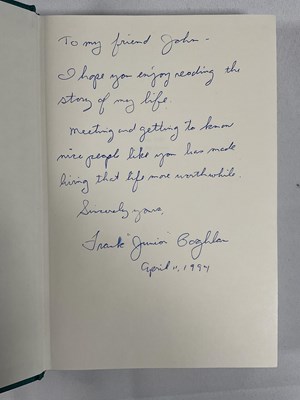 To my friend John -
I hope you enjoy reading the
story of my life.
Meeting and getting to know
nice people like you has made
living that life more worthwhile.
Sincerely yours,
Frank "Junior" Coghlan
April 11, 1994